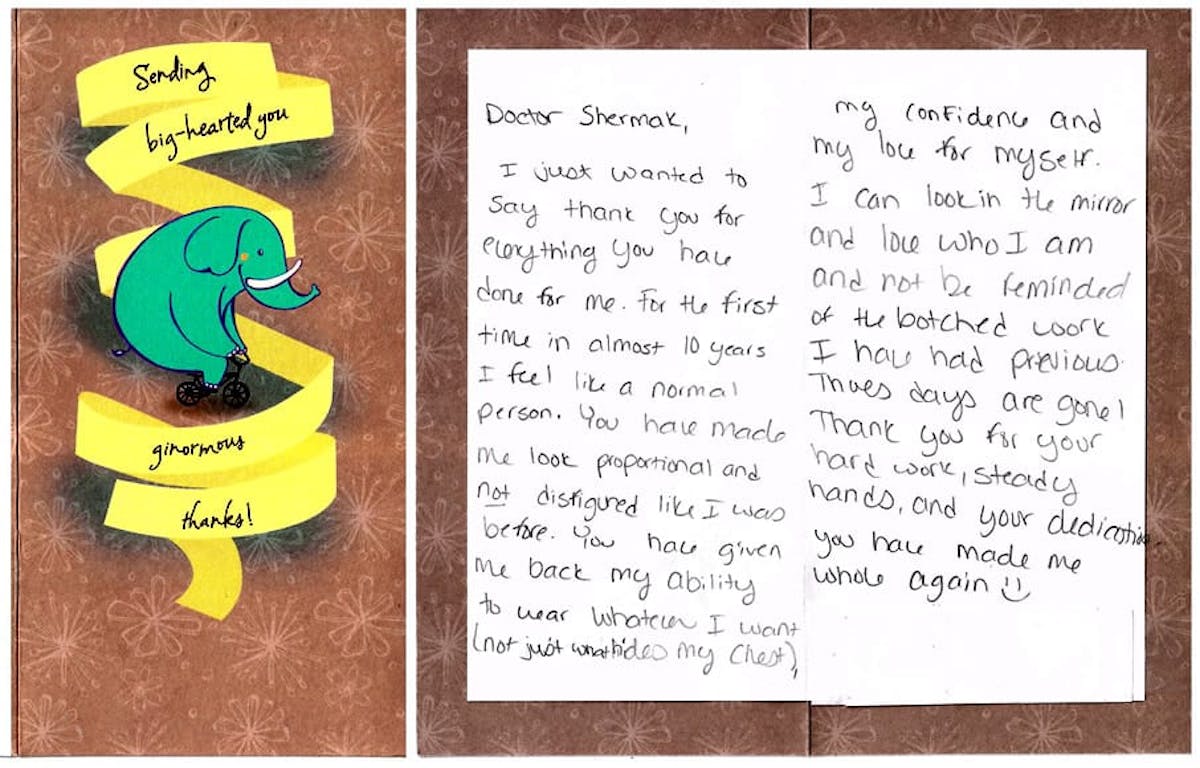 Sending
big-hearted you
ginormous
thanks!
Doctor Shermak,
I just wanted to
say thank you for
everything you have
done for me. For the first
time in almost 10 years
I feel like a normal
person. You have made
me look proportional and
not disfigured like I was
before. You have given
me back my ability
to wear whatever I want
(not just what hides my chest),
my confidence and
my love for myself.
I can look in the mirror
and love who I am
and not be reminded
of the botched work
I have had previous.
Thoes days are gone!
Thank you for your
hard work, steady
hands, and your dedication.
you have made me
whole again